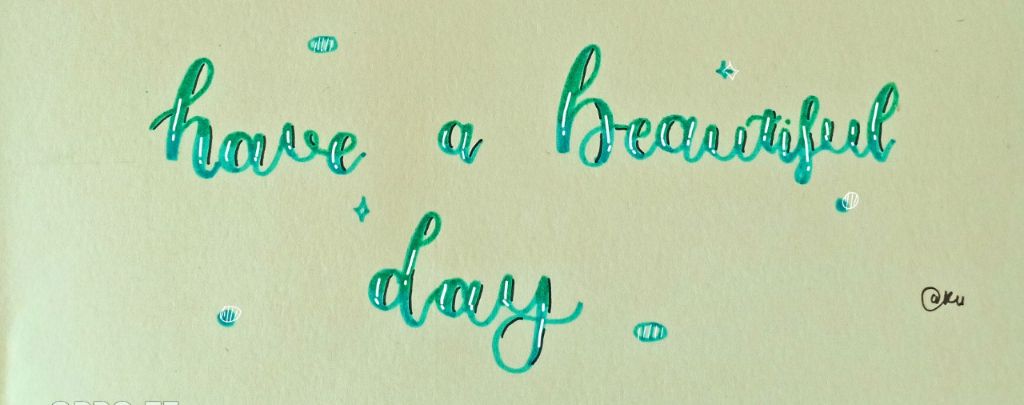 have a beautiful
day
@ku